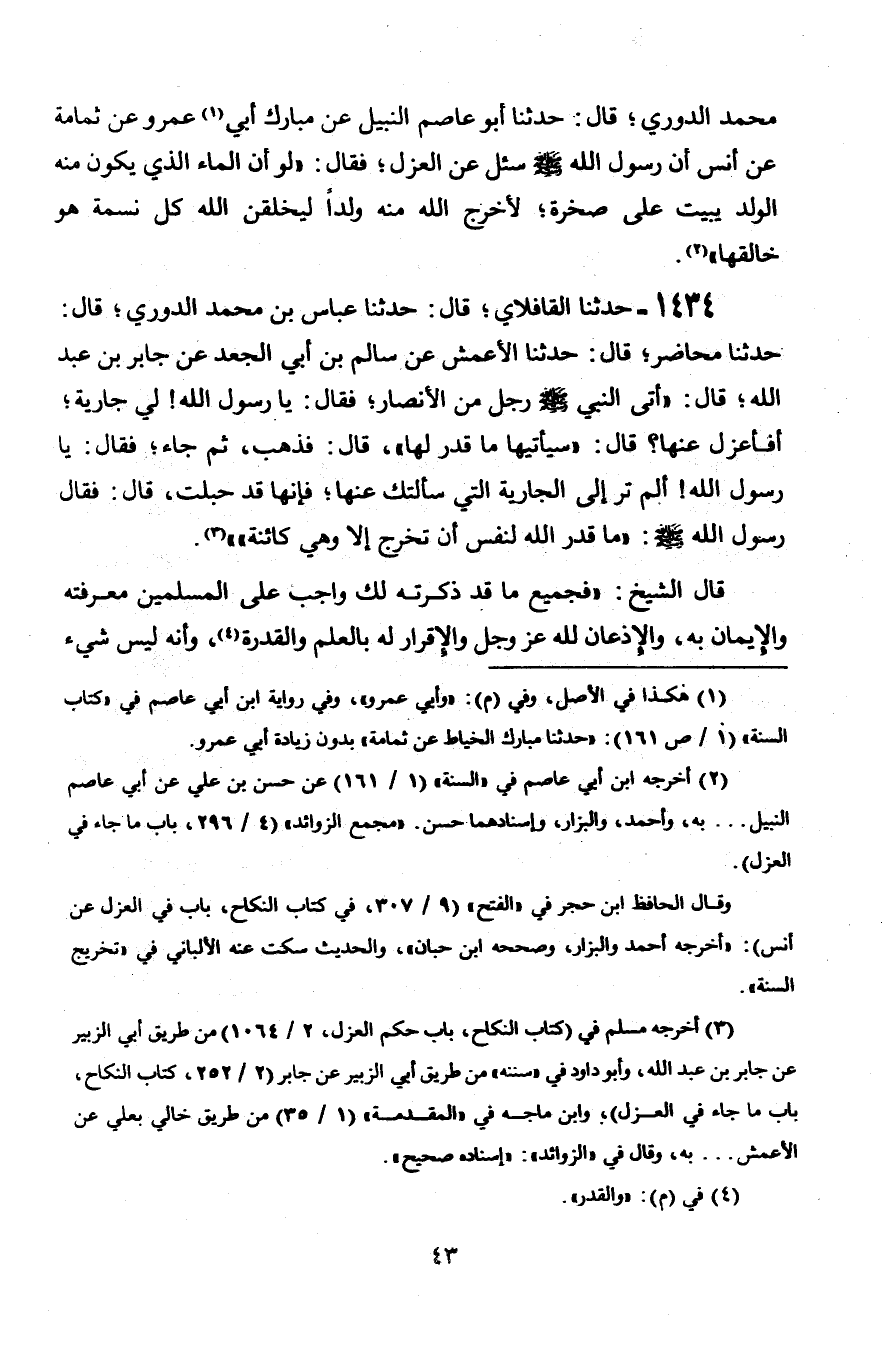 محمد الدوري؛ قال: حدثنا أبو عاصم النبيل عن مبارك أبي(١) عمرو عن ثمامة
عن أنس أن رسول الله ﷺ سئل عن العزل؛ فقال: «لو أن الماء الذي يكون منه
الولد يبيت على صخرة؛ لأخرج الله منه ولداً ليخلقن الله كل نسمة هو
خالقها»(٢).
١٤٣٤ - حدثنا القافلاي؛ قال: حدثنا عباس بن محمد الدوري؛ قال:
حدثنا محاضر؛ قال: حدثنا الأعمش عن سالم بن أبي الجعد عن جابر بن عبد
الله؛ قال: «أتى النبي ﷺ رجل من الأنصار؛ فقال: يا رسول الله! لي جارية؛
أفأعزل عنها؟ قال: «سيأتيها ما قدر لها»، قال: فذهب، ثم جاء؛ فقال: يا
رسول الله! ألم تر إلى الجارية التي سألتك عنها؛ فإنها قد حبلت، قال: فقال
رسول الله ﷺ: «ما قدر الله لنفس أن تخرج إلا وهي كائنة»»(٣).
قال الشيخ: «فجميع ما قد ذكرته لك واجب على المسلمين معرفته
والإيمان به، والإذعان لله عز وجل والإقرار له بالعلم والقدرة(٤)، وأنه ليس شيء
(١) هكذا في الأصل، وفي (م): «وأبي عمرو»، وفي رواية ابن أبي عاصم في «كتاب
السنة» (١ / ص ١٦١): «حدثنا مبارك الخياط عن ثمامة» بدون زيادة أبي عمرو.
(٢) أخرجه ابن أبي عاصم في «السنة» (١ / ١٦١) عن حسن بن علي عن أبي عاصم
النبيل... به، وأحمد، والبزار، وإسنادهما حسن. «مجمع الزوائد» (٤ / ٢٩٦، باب ما جاء في
العزل).
وقال الحافظ ابن حجر في «الفتح» (٩ / ٣٠٧، في كتاب النكاح، باب في العزل عن
أنس): «أخرجه أحمد والبزار، وصححه ابن حبان»، والحديث سكت عنه الألباني في «تخريج
السنة».
(٣) أخرجه مسلم في (كتاب النكاح، باب حكم العزل، ٢ / ١٠٦٤) من طريق أبي الزبير
عن جابر بن عبد الله، وأبو داود في «سننه» من طريق أبي الزبير عن جابر (٢ / ٢٥٢، كتاب النكاح،
باب ما جاء في العزل)، وابن ماجه في «المقدمة» (١ / ٣٥) من طريق خالي بعلي عن
الأعمش... به، وقال في «الزوائد»: «إسناده صحيح».
(٤) في (م): «والقدر».
٤٣